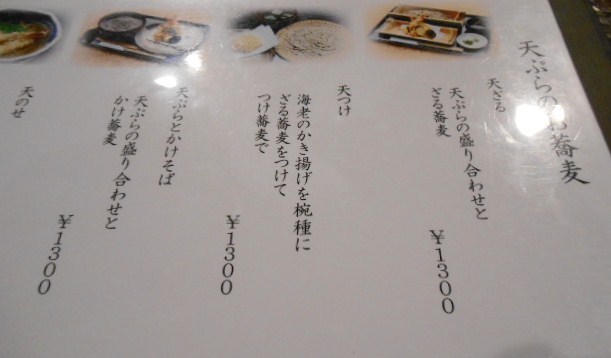 天ぷらのお蕎麦
天ざる
天ぷらの盛り合わせと
ざる蕎麦
¥1300
天つけ
海老のかき揚げを椀種に
ざる蕎麦をつけて
つけ蕎麦で
¥1300
天ぷらとかけそば
天ぷらの盛り合わせと
かけ蕎麦
¥1300
天のせ